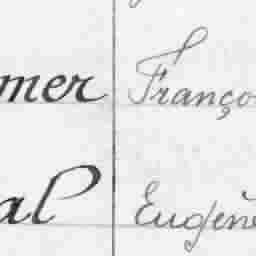 mer Franço
al Eugène